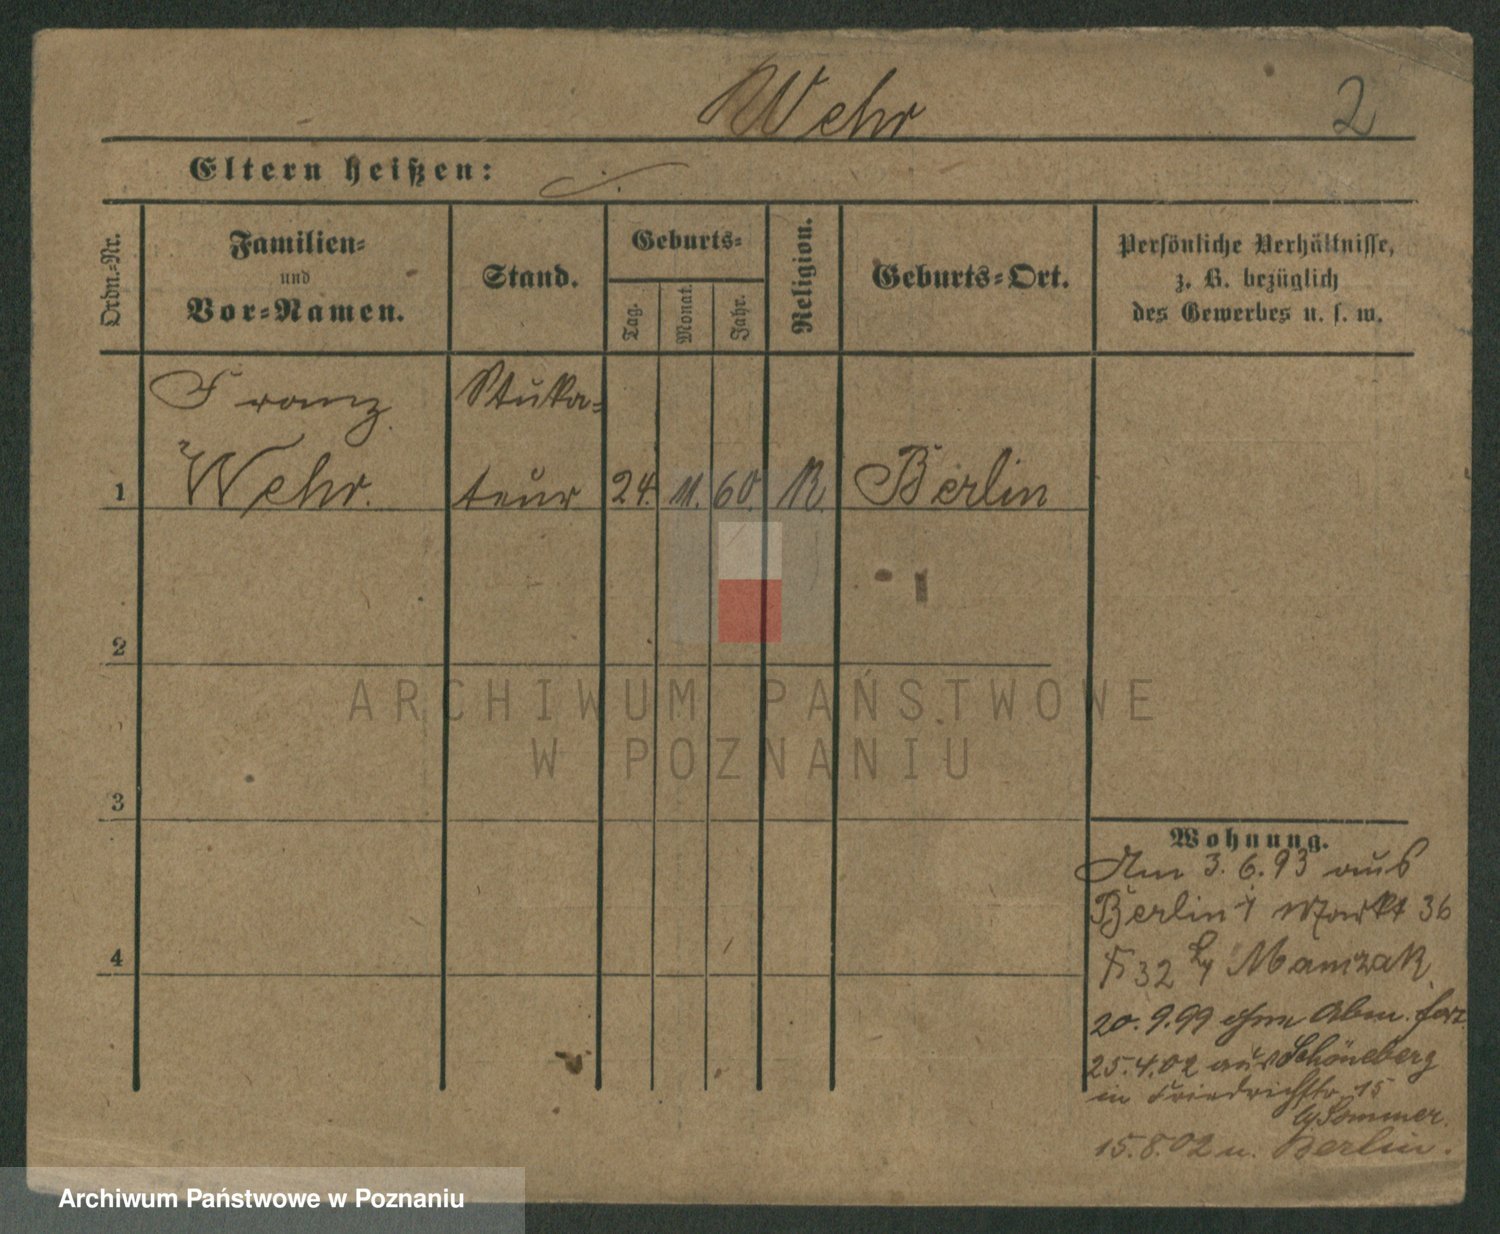 Wehr
2
Eltern heißen:
Ordn.-Nr.
Familien-
und
Vor-Namen.
Stand.
Geburts-
Tag.
Monat.
Jahr.
Religion.
Geburts-Ort.
Persönliche Verhältnisse,
z. B. bezüglich
des Gewerbes u. s. w.
Franz
Stuka-
1 Wehr. teur 24. 11. 60. K. Berlin
2
3
4
Wohnung.
Am 3.6.93 aus
Berlin Markt 36
32
20.9.99 ohne Abm.
25.4.02 aus Schöneberg
in Friedrichstr. 15
Sommer.
15.8.02 n. Berlin.
ARCHIWUM PAŃSTWOWE
W POZNANIU
Archiwum Państwowe w Poznaniu